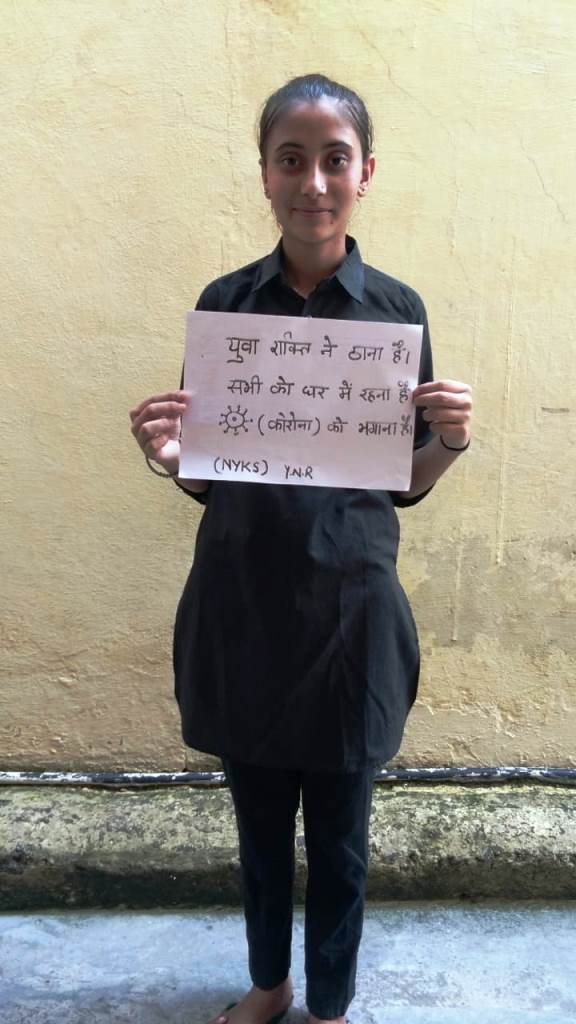 युवा शक्ति ने ठाना है।
सभी को घर में रहना है
(कोरोना) को भगाना है।
(NYKS) Y.N.R